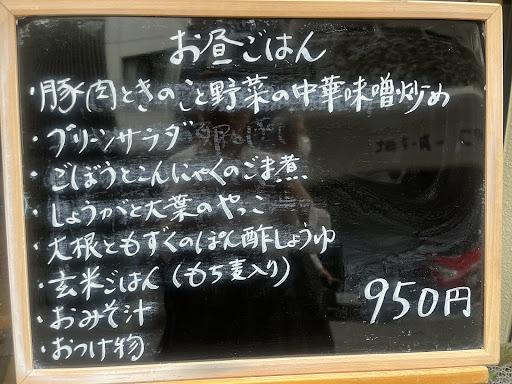 お昼ごはん
・豚肉ときのこと野菜の中華味噌炒め
・グリーンサラダ
・ごぼうとこんにゃくのごま煮
・しょうがと大葉のやっこ
・大根ともずくのぽん酢しょうゆ
・玄米ごはん(もち麦入り)
・おみそ汁
・おつけ物
950円